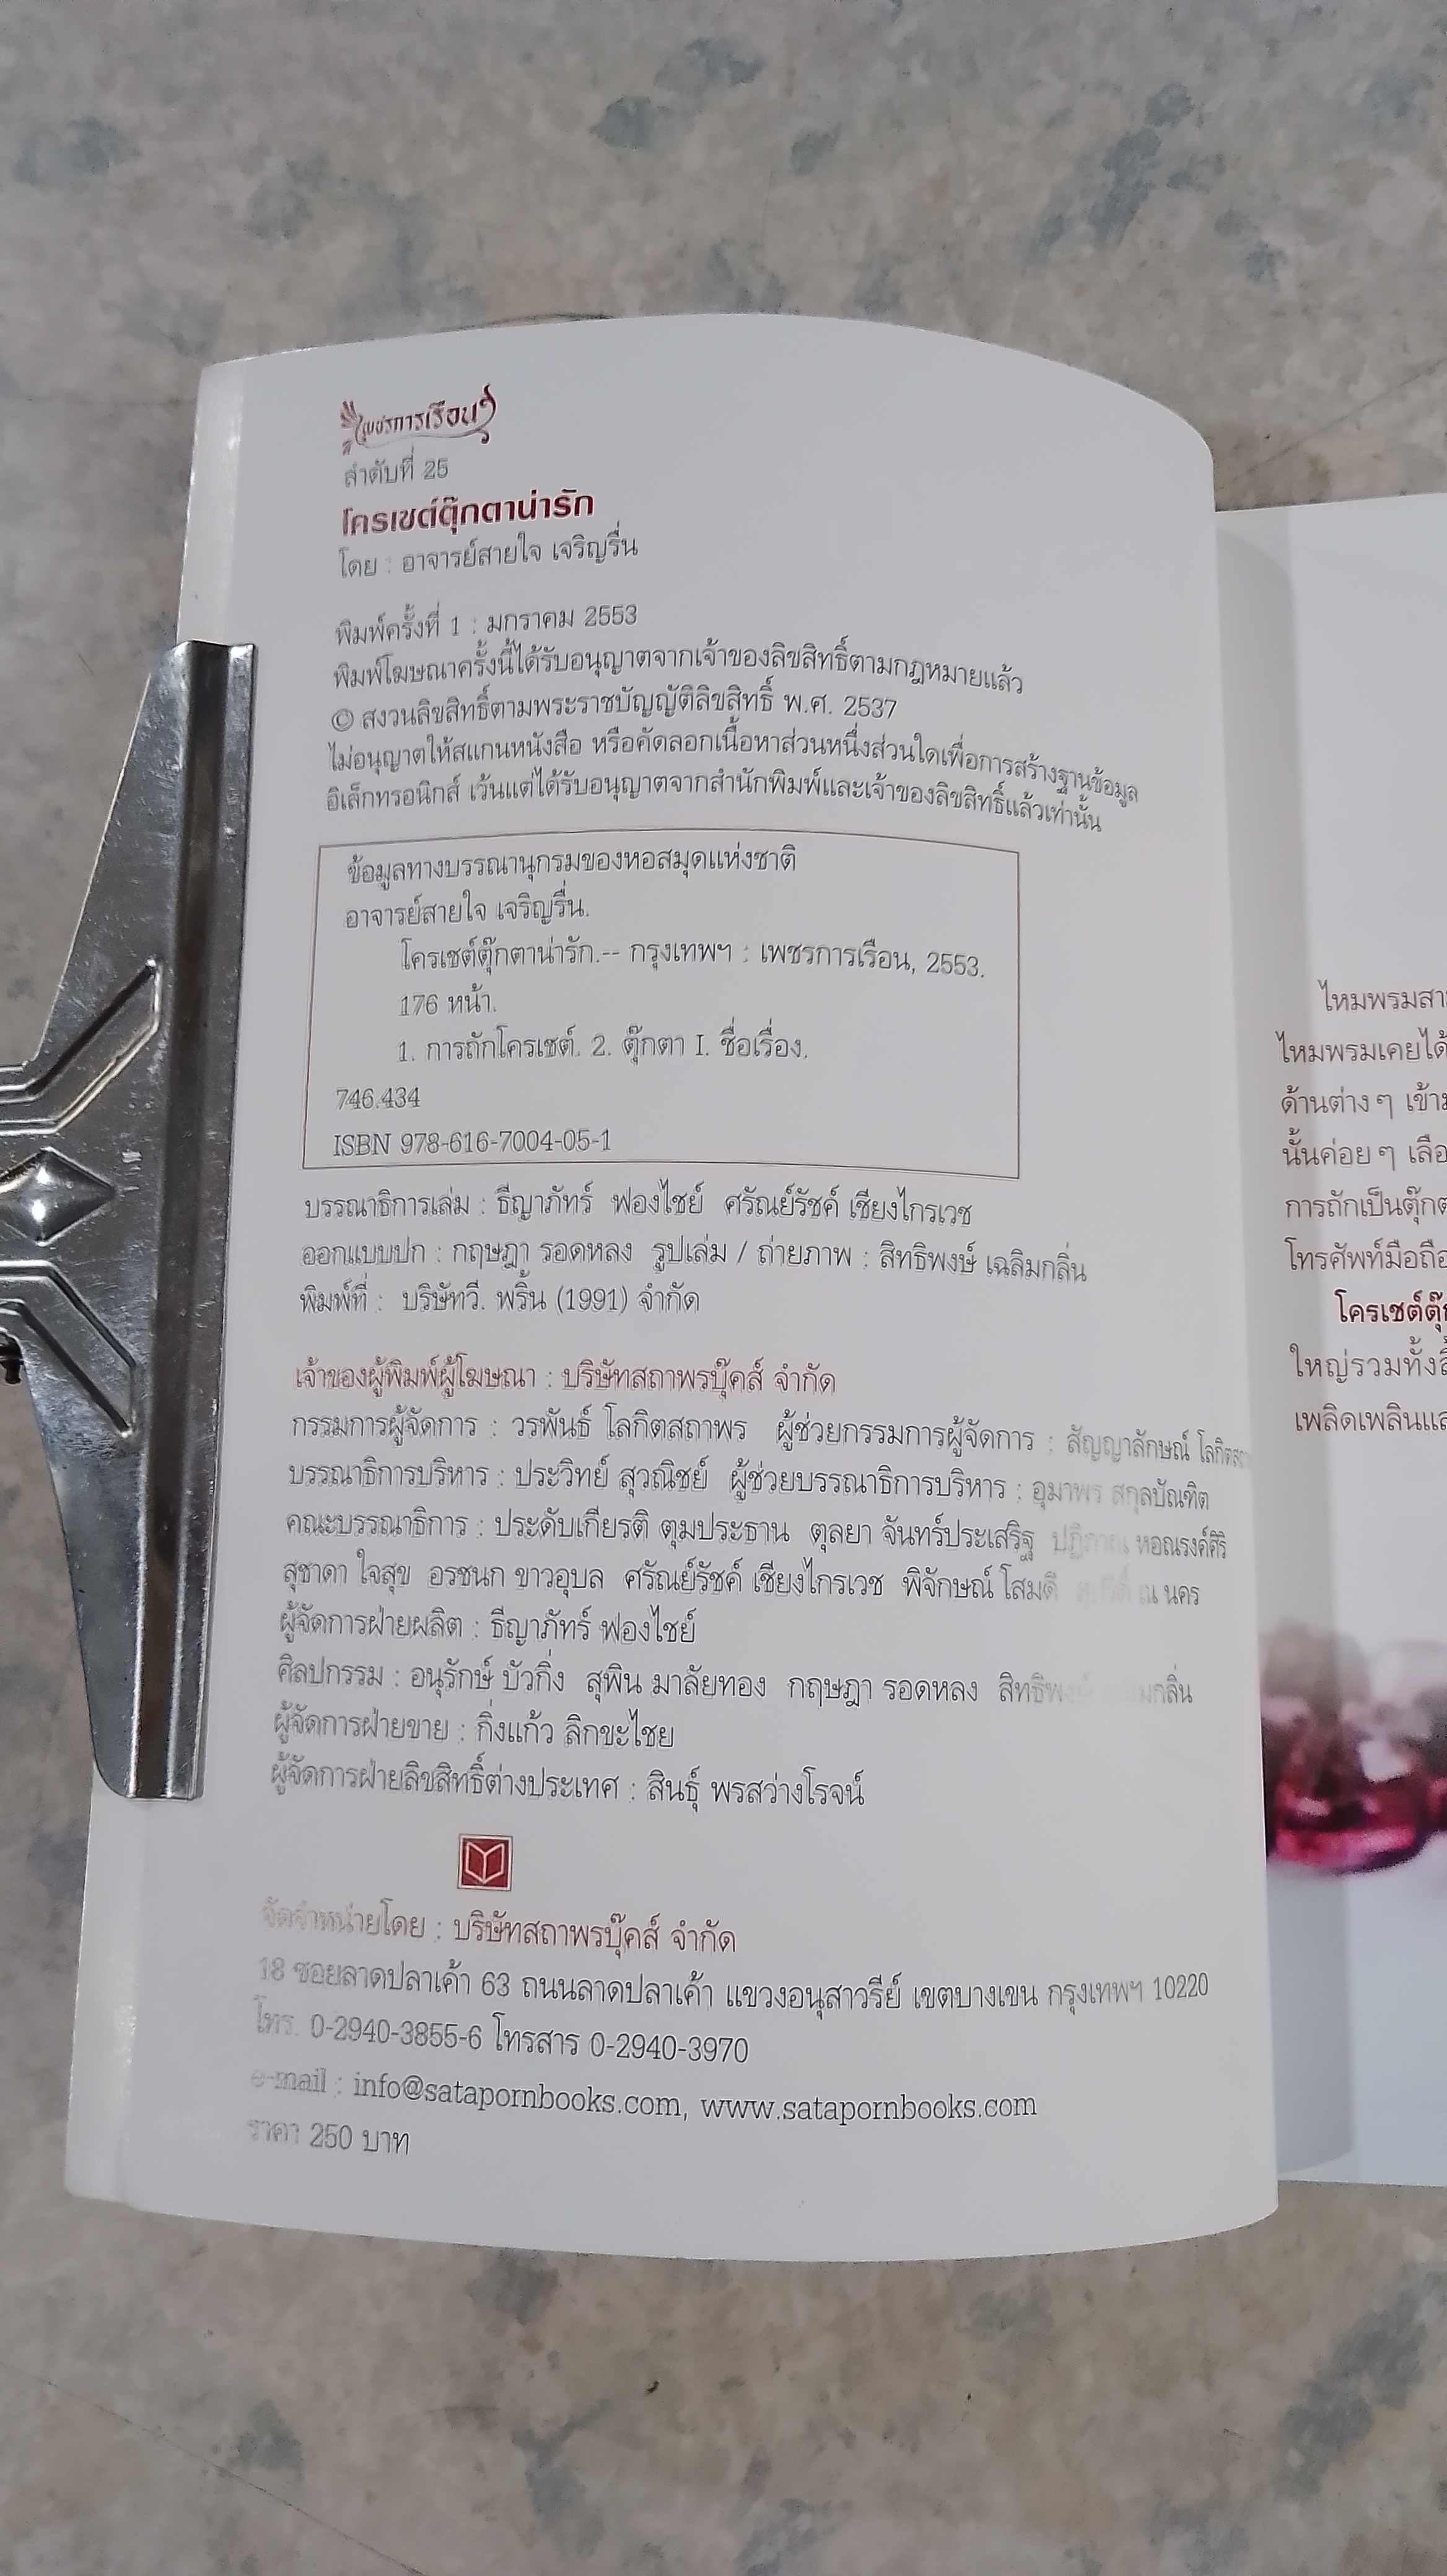 เพชรการเรือน
ลำดับที่ 25
โครเชต์ตุ๊กตาน่ารัก
โดย : อาจารย์สายใจ เจริญรื่น
พิมพ์ครั้งที่ 1 : มกราคม 2553
พิมพ์โฆษณาครั้งนี้ได้รับอนุญาตจากเจ้าของลิขสิทธิ์ตามกฎหมายแล้ว
© สงวนลิขสิทธิ์ตามพระราชบัญญัติลิขสิทธิ์ พ.ศ. 2537
ไม่อนุญาตให้สแกนหนังสือ หรือคัดลอกเนื้อหาส่วนหนึ่งส่วนใดเพื่อการสร้างฐานข้อมูล
อิเล็กทรอนิกส์ เว้นแต่ได้รับอนุญาตจากสำนักพิมพ์และเจ้าของลิขสิทธิ์แล้วเท่านั้น
ข้อมูลทางบรรณานุกรมของหอสมุดแห่งชาติ
อาจารย์สายใจ เจริญรื่น.
โครเชต์ตุ๊กตาน่ารัก.-- กรุงเทพฯ : เพชรการเรือน, 2553.
176 หน้า.
1. การถักโครเชต์. 2. ตุ๊กตา I. ชื่อเรื่อง.
746.434
ISBN 978-616-7004-05-1
บรรณาธิการเล่ม : ธีญาภัทร์ ฟองไชย์ ศรัณย์รัชค์ เชียงไกรเวช
ออกแบบปก : กฤษฎา รอดหลง รูปเล่ม / ถ่ายภาพ : สิทธิพงษ์ เฉลิมกลิ่น
พิมพ์ที่ : บริษัทวี. พริ้น (1991) จำกัด
เจ้าของผู้พิมพ์ผู้โฆษณา : บริษัทสถาพรบุ๊คส์ จำกัด
กรรมการผู้จัดการ : วรพันธ์ โลกิตสถาพร ผู้ช่วยกรรมการผู้จัดการ : สัญญาลักษณ์
บรรณาธิการบริหาร : ประวิทย์ สุวณิชย์ ผู้ช่วยบรรณาธิการบริหาร : อุมาพร สกุลบัณฑิต
คณะบรรณาธิการ : ประดับเกียรติ ตุมประธาน ตุลยา จันทร์ประเสริฐ หอณรงค์ศิริ
สุชาดา ใจสุข อรชนก ขาวอุบล ศรัณย์รัชค์ เชียงไกรเวช พิจักษณ์ โสมดี ณ นคร
ผู้จัดการฝ่ายผลิต : ธีญาภัทร์ ฟองไชย์
ศิลปกรรม : อนุรักษ์ บัวกิ่ง สุพิน มาลัยทอง กฤษฎา รอดหลง สิทธิพงษ์ เฉลิมกลิ่น
ผู้จัดการฝ่ายขาย : กิ่งแก้ว ลิกขะไชย
ผู้จัดการฝ่ายลิขสิทธิ์ต่างประเทศ : สินธุ์ พรสว่างโรจน์
จัดจำหน่ายโดย : บริษัทสถาพรบุ๊คส์ จำกัด
18 ซอยลาดปลาเค้า 63 ถนนลาดปลาเค้า แขวงอนุสาวรีย์ เขตบางเขน กรุงเทพฯ 10220
โทร. 0-2940-3855-6 โทรสาร 0-2940-3970
e-mail : info@satapornbooks.com, www.satapornbooks.com
ราคา 250 บาท
ไหมพรมสา
ไหมพรมเคยได้
ด้านต่าง ๆ เข้า
นั้นค่อย ๆ เลือ
การถักเป็นตุ๊ก
โทรศัพท์มือถือ
โครเชต์ตุ๊
ใหญ่รวมทั้ง
เพลิดเพลินแ